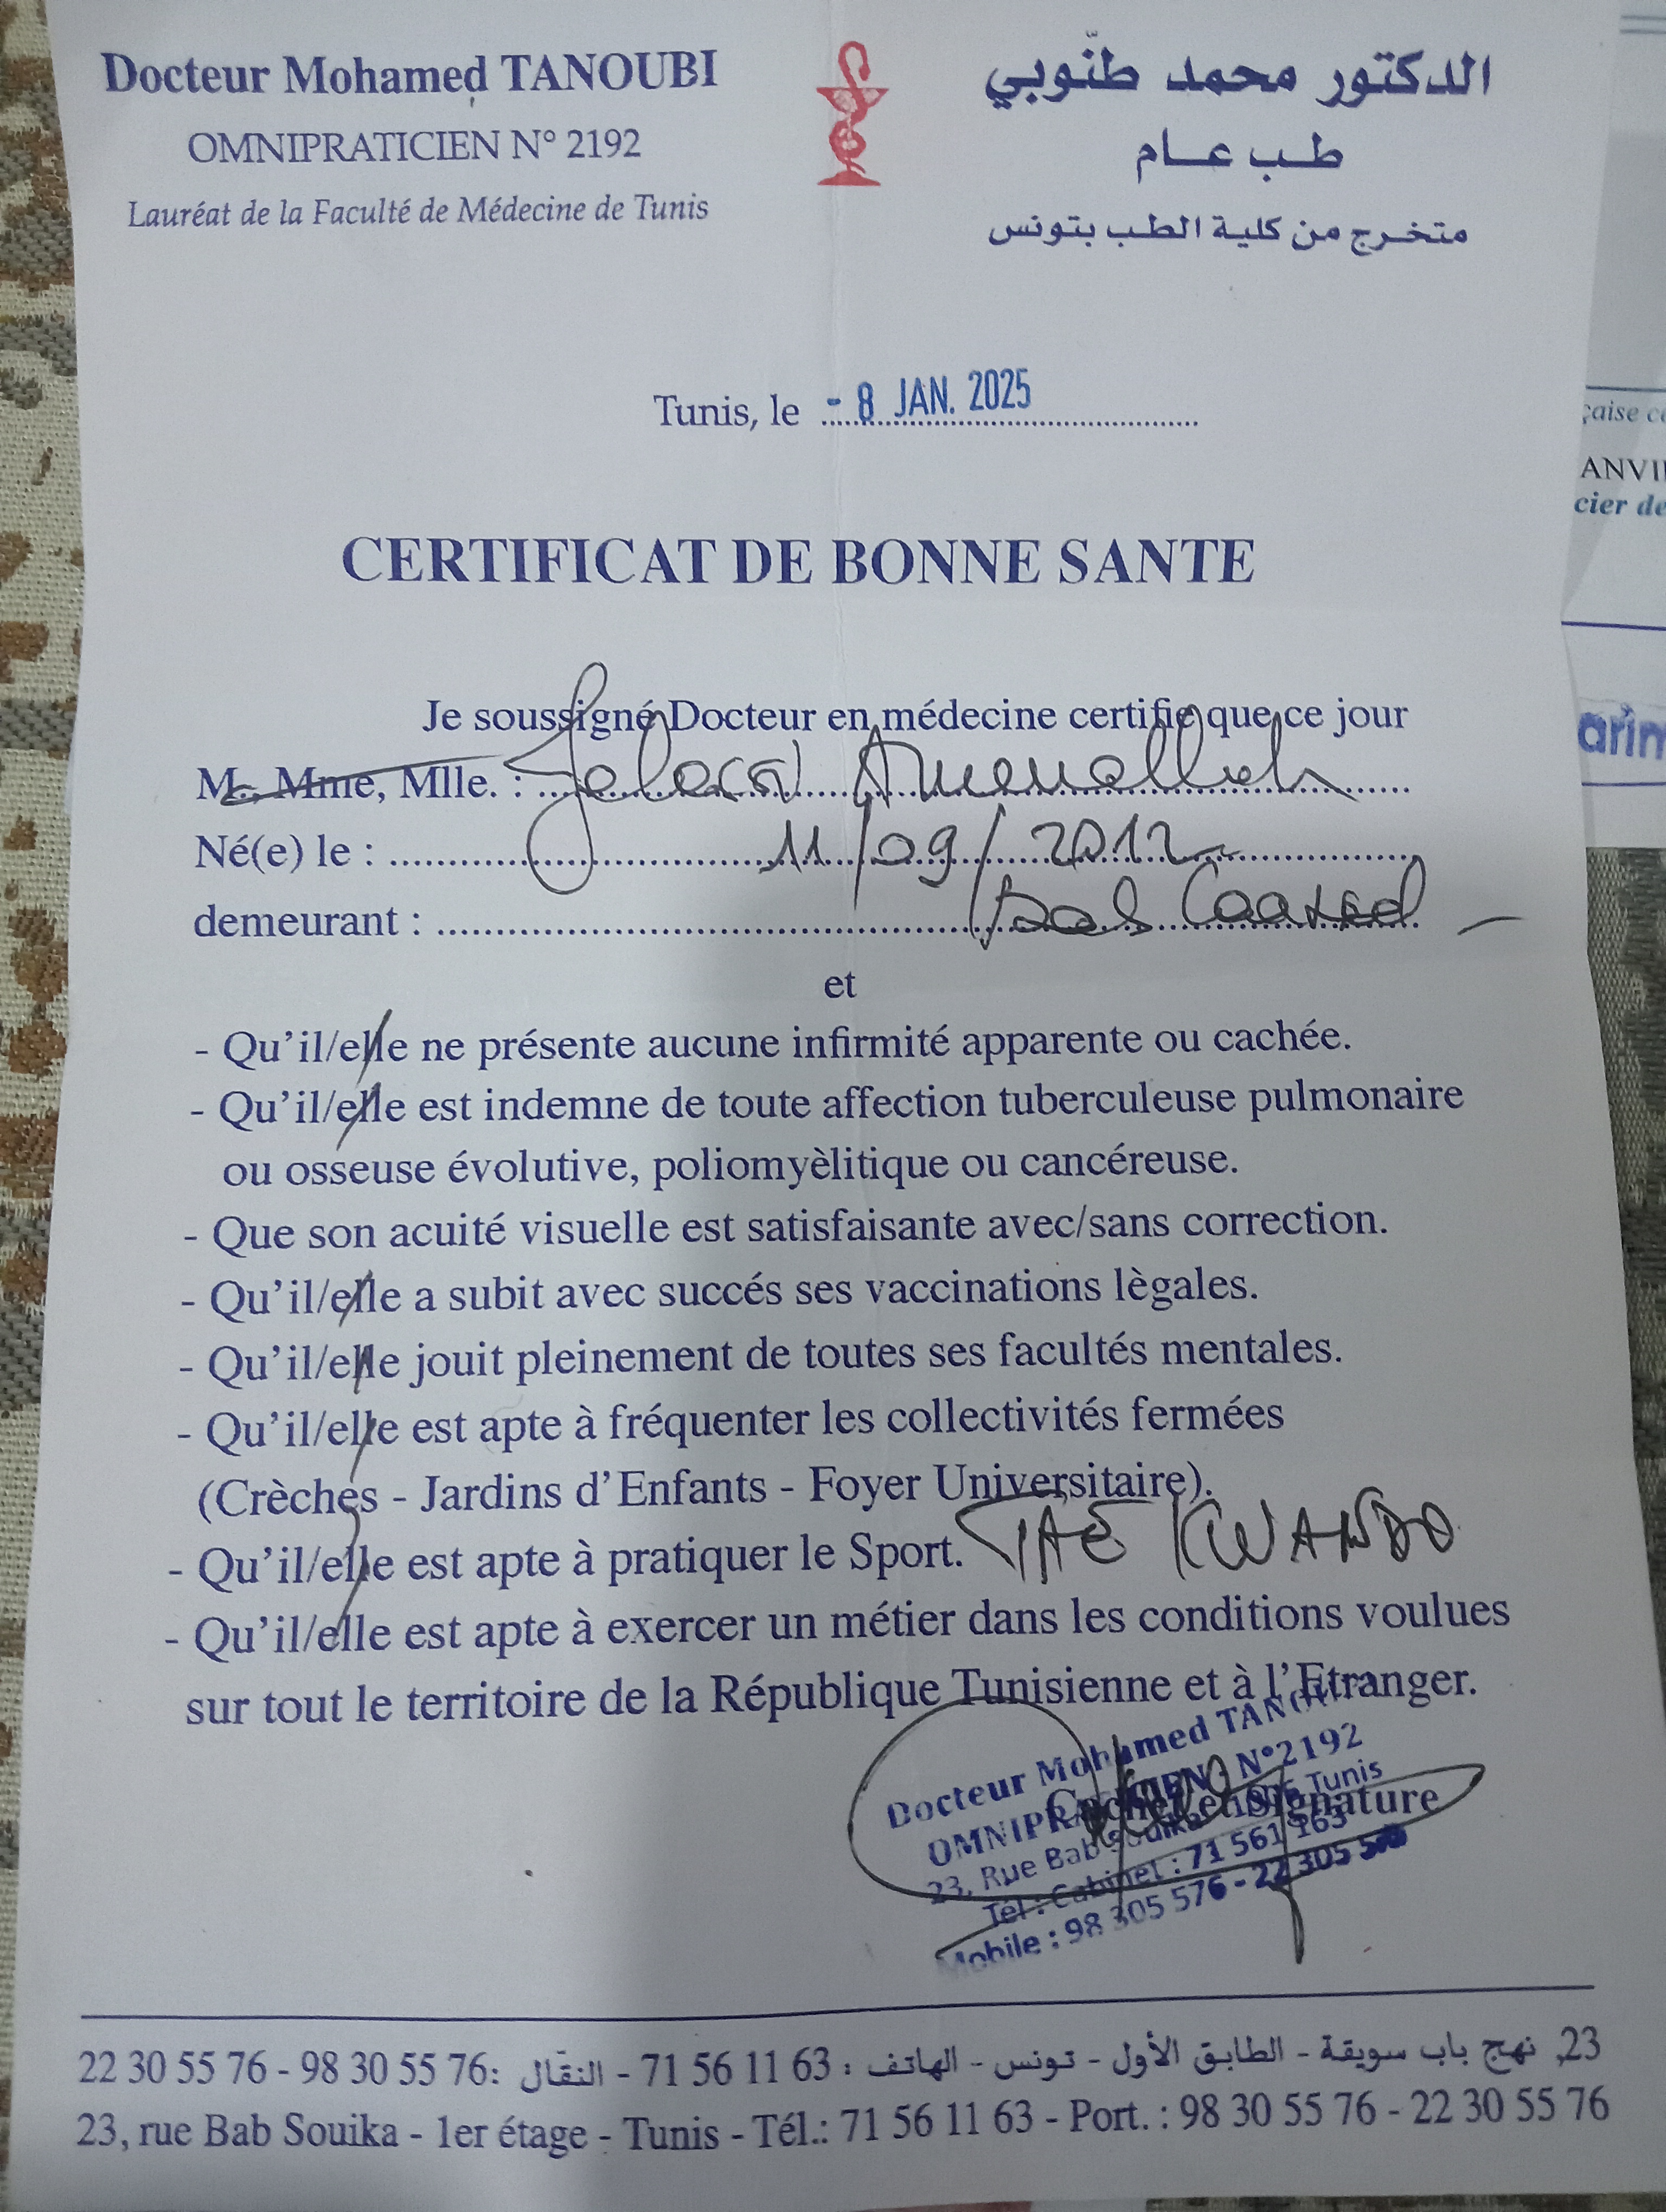 Docteur Mohamed TANOUBI
OMNIPRATICIEN N° 2192
Lauréat de la Faculté de Médecine de Tunis
الدكتور محمد طنّوبي
طب عام
متخرج من كلية الطب بتونس
Tunis, le - 8 JAN. 2025
CERTIFICAT DE BONNE SANTE
Je soussigné Docteur en médecine certifie que ce jour
M., Mme, Mlle. :
Né(e) le : 11/09/2012
demeurant : Bab
et
- Qu'il/elle ne présente aucune infirmité apparente ou cachée.
- Qu'il/elle est indemne de toute affection tuberculeuse pulmonaire
ou osseuse évolutive, poliomyèlitique ou cancéreuse.
- Que son acuité visuelle est satisfaisante avec/sans correction.
- Qu'il/elle a subit avec succés ses vaccinations lègales.
- Qu'il/elle jouit pleinement de toutes ses facultés mentales.
- Qu'il/elle est apte à fréquenter les collectivités fermées
(Crèches - Jardins d'Enfants - Foyer Universitaire).
- Qu'il/elle est apte à pratiquer le Sport. TAE KWANDO
- Qu'il/elle est apte à exercer un métier dans les conditions voulues
sur tout le territoire de la République Tunisienne et à l'Etranger.
Cachet et Signature
Docteur Mohamed
N°2192
23, Rue Bab Souika Tunis
Tél : Cabinet : 71 561 163
Mobile : 98 305 576 - 22 305 576
23, نهج باب سويقة - الطابق الأول - تونس - الهاتف : 63 11 56 71 - النقّال :76 55 30 98 - 76 55 30 22
23, rue Bab Souika - 1er étage - Tunis - Tél.: 71 56 11 63 - Port. : 98 30 55 76 - 22 30 55 76
çaise
ANVI
cier de
arim